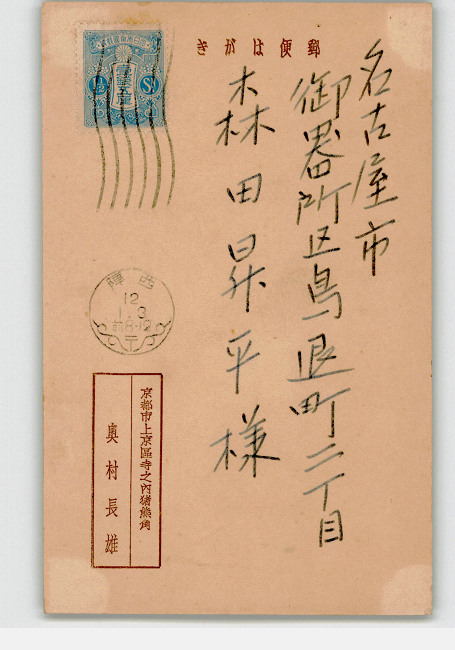 きがは便郵
名古屋市
御器所区鳥退町二丁目
森田昇平様
1½ Sn
壹錢五厘
西陣
12
1.3
前8-12
京都市上京區寺之内猪熊角
奥村長雄